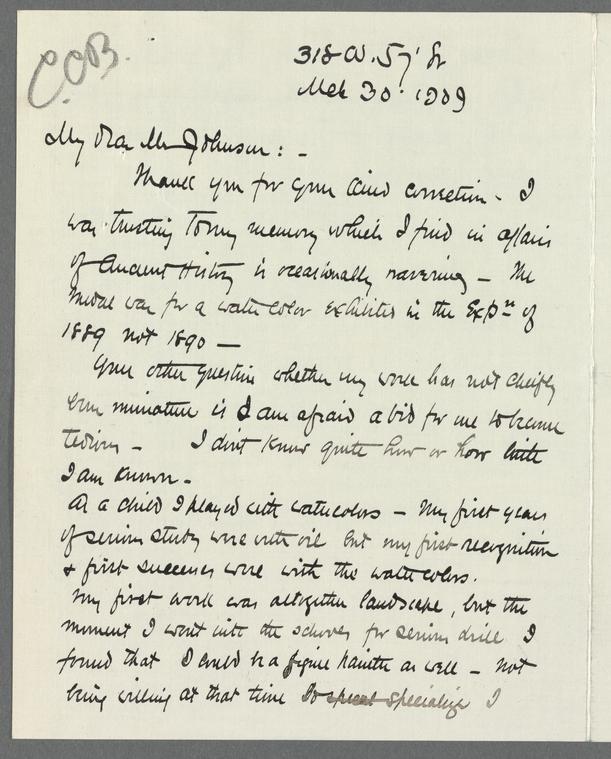 C.C.B.
318 W. 57' St
Mch 30. 1909
My Dear Mr Johnson: -
Thank you for your kind correction - I
was trusting to my memory which I find in affairs
of Ancient History is occasionally wavering - The
medal was for a water color exhibited in the Expn of
1889 not 1890 —
Your other question whether my work has not chiefly
been miniature is I am afraid a bid for me to become
tedious - I don't know quite how or how little
I am known -
As a child I played with watercolors - My first years
of serious study were with oil but my first recognition
& first successes were with the watercolors.
My first work was altogether landscape, but the
moment I went into the schools for serious drill I
found that I could be a figure painter as well - Not
being willing at that time to specialize I